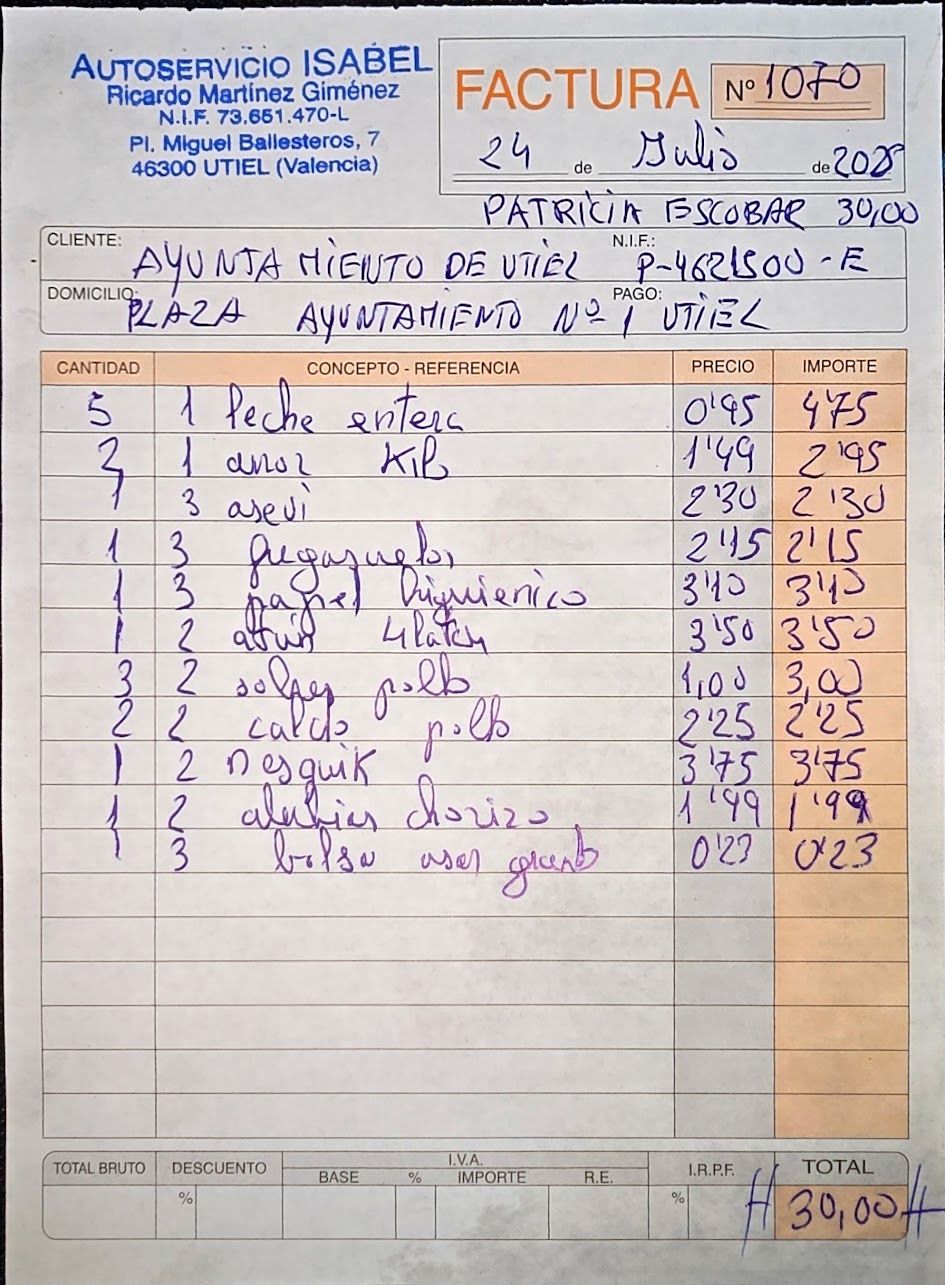 AUTOSERVICIO ISABEL
Ricardo Martínez Giménez
N.I.F. 73.651.470-L
Pl. Miguel Ballesteros, 7
46300 UTIEL (Valencia)
FACTURA Nº 1070
24 de Julio de 2025
PATRICIA ESCOBAR 30,00
CLIENTE: AYUNTAMIENTO DE UTIEL N.I.F.: P-4621500-E
DOMICILIO: PLAZA AYUNTAMIENTO Nº 1 PAGO: UTIEL
CANTIDAD CONCEPTO - REFERENCIA PRECIO IMPORTE
5 1 leche entera 0'95 4'75
2 1 arroz Kilo 1'49 2'95
1 3 asevi 2'30 2'30
1 3 fregasuelos 2'15 2'15
1 3 papel higuienico 3'10 3'10
1 2 atun 4 latas 3'50 3'50
3 2 sopas pollo 1,00 3,00
2 2 caldo pollo 2'25 2'25
1 2 nesquik 3'75 3'75
1 2 alubias chorizo 1'99 1'99
1 3 bolsa asas grande 0'23 0'23
TOTAL BRUTO DESCUENTO I.V.A. I.R.P.F. TOTAL
BASE % IMPORTE R.E.
% % # 30,00 #